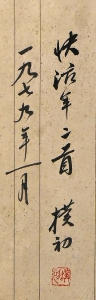 快活年二首 樸初
一九七九年一月